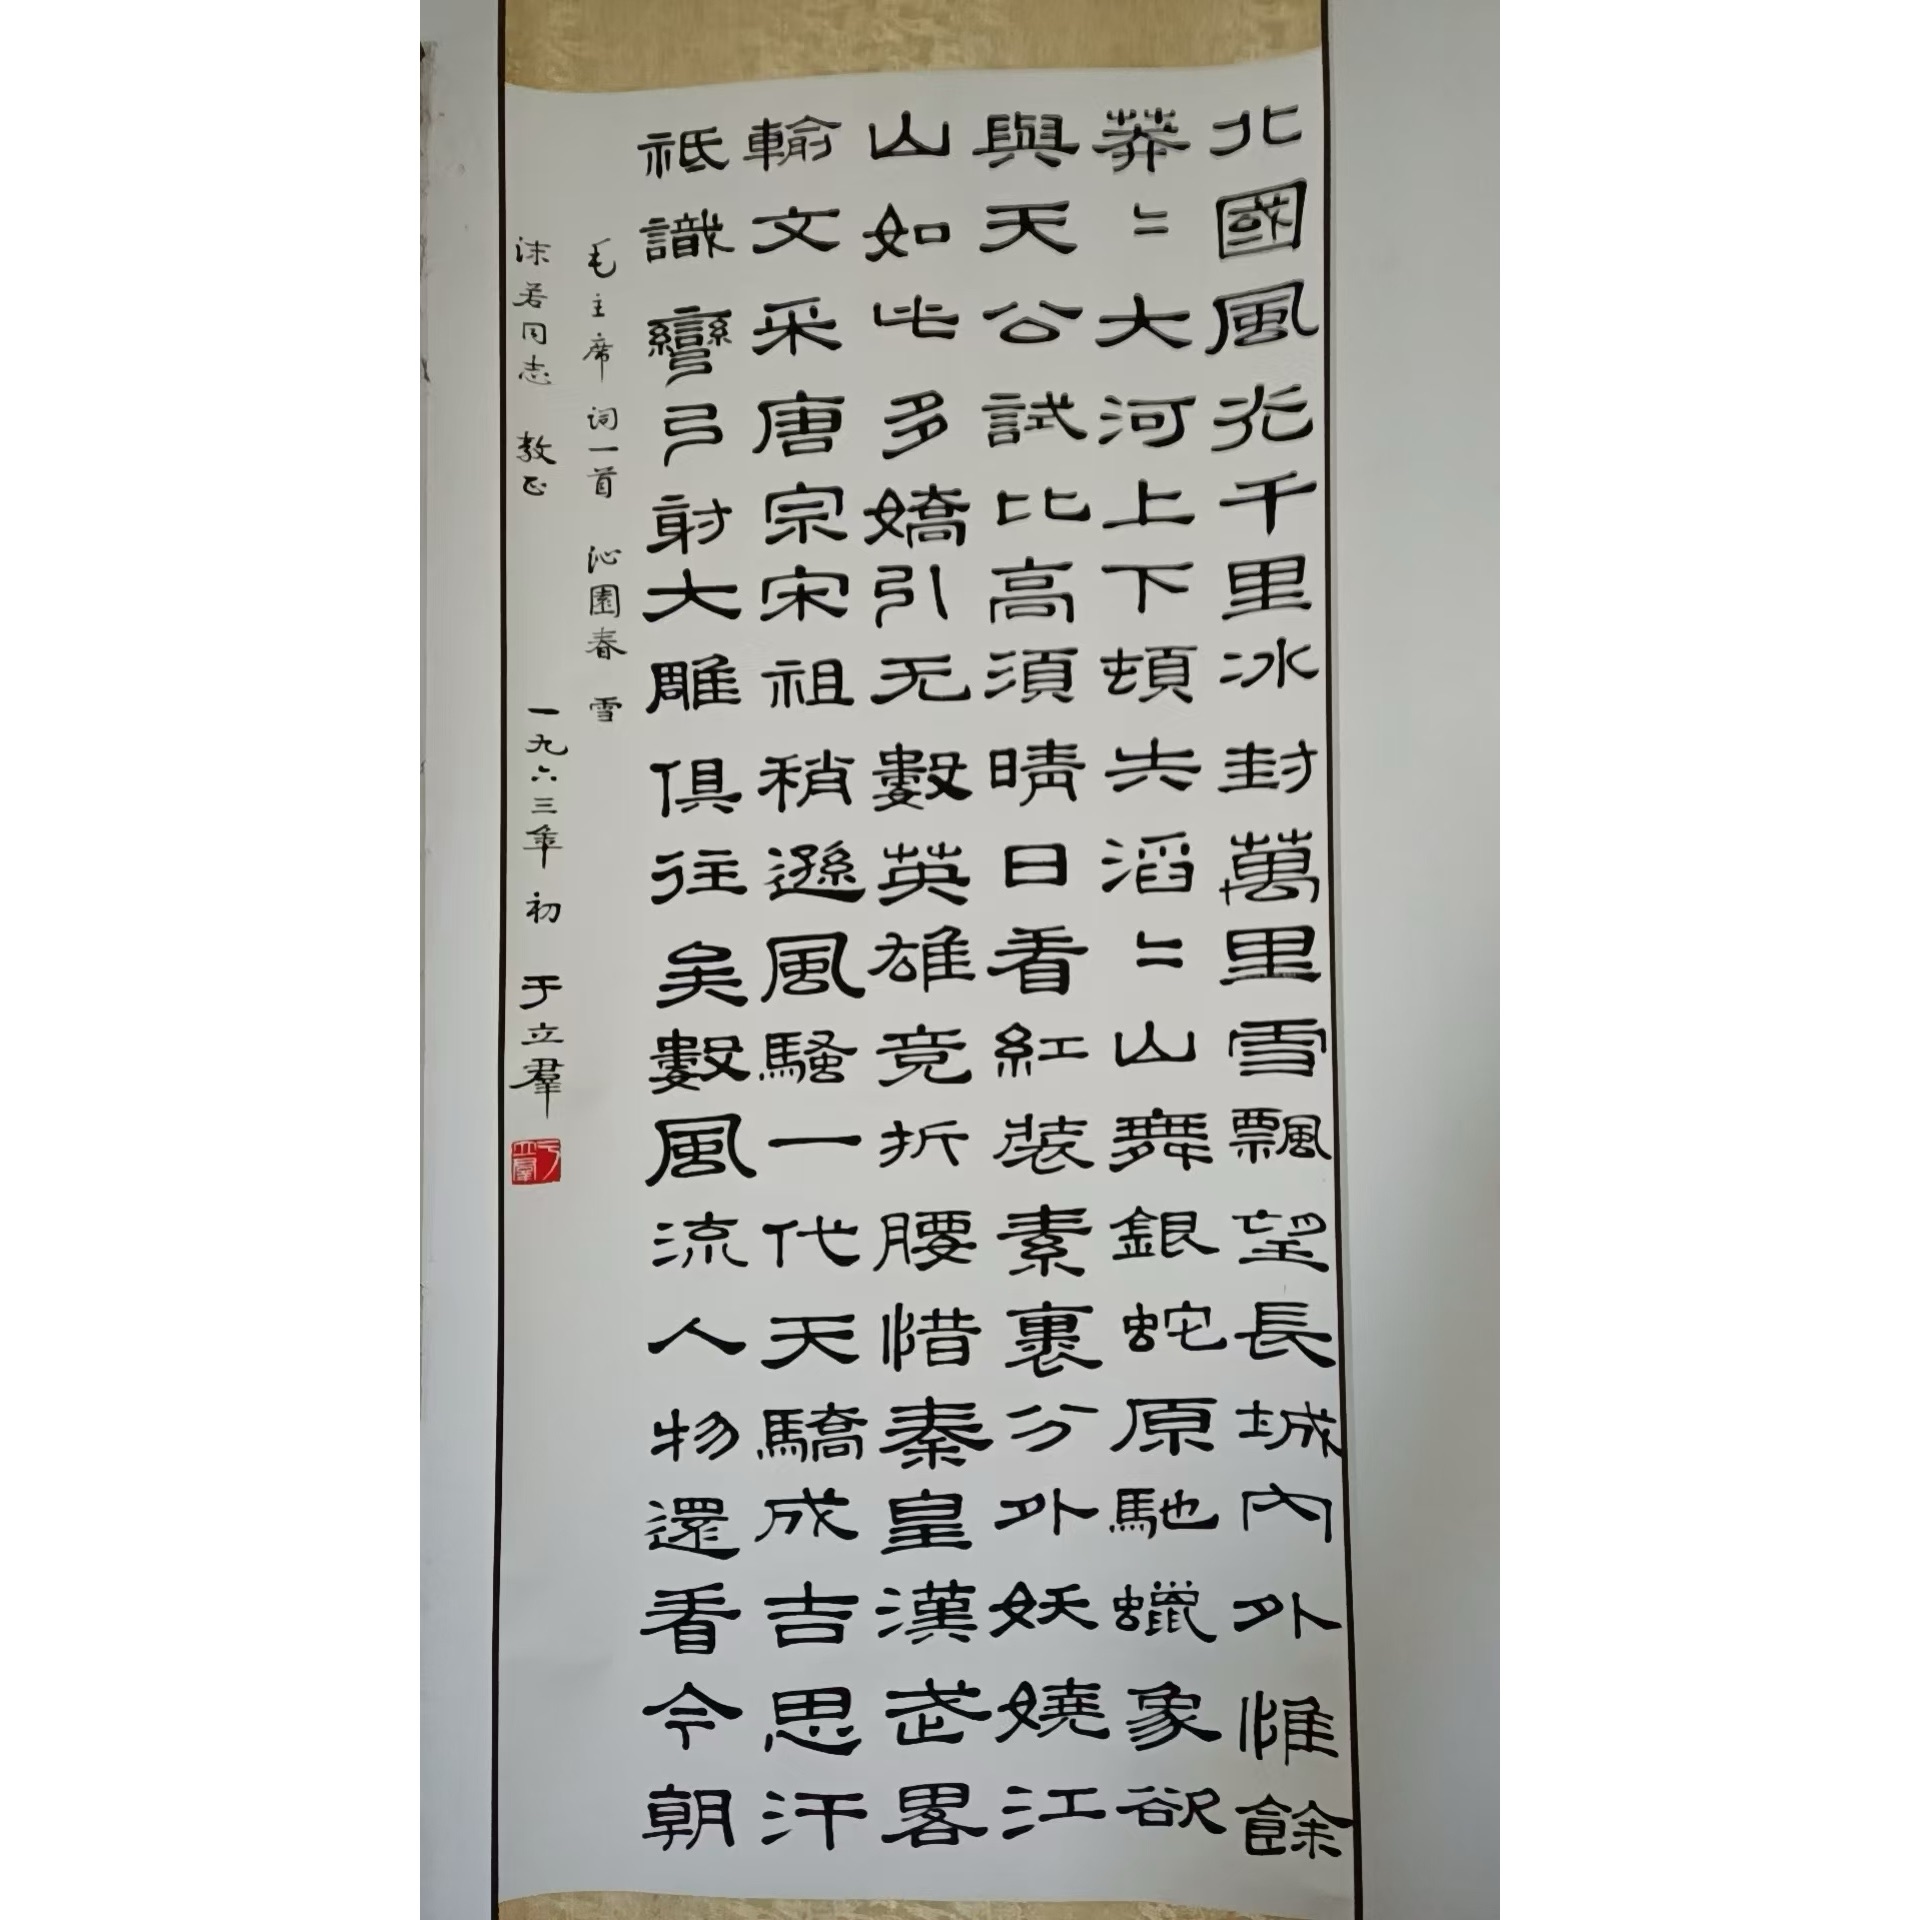 北國風光千里冰封萬里雪飄望長城內外惟餘
莽〻大河上下頓失滔〻山舞銀蛇原馳蠟象欲
與天公試比高須晴日看紅裝素裹分外妖嬈江
山如此多嬌引无數英雄竞折腰惜秦皇漢武畧
輸文采唐宗宋祖稍遜風騷一代天驕成吉思汗
祇識彎弓射大雕俱往矣數風流人物還看今朝
毛主席 詞一首 沁園春 雪
沫若同志 教正 一九六三年 初 于立羣
于立羣